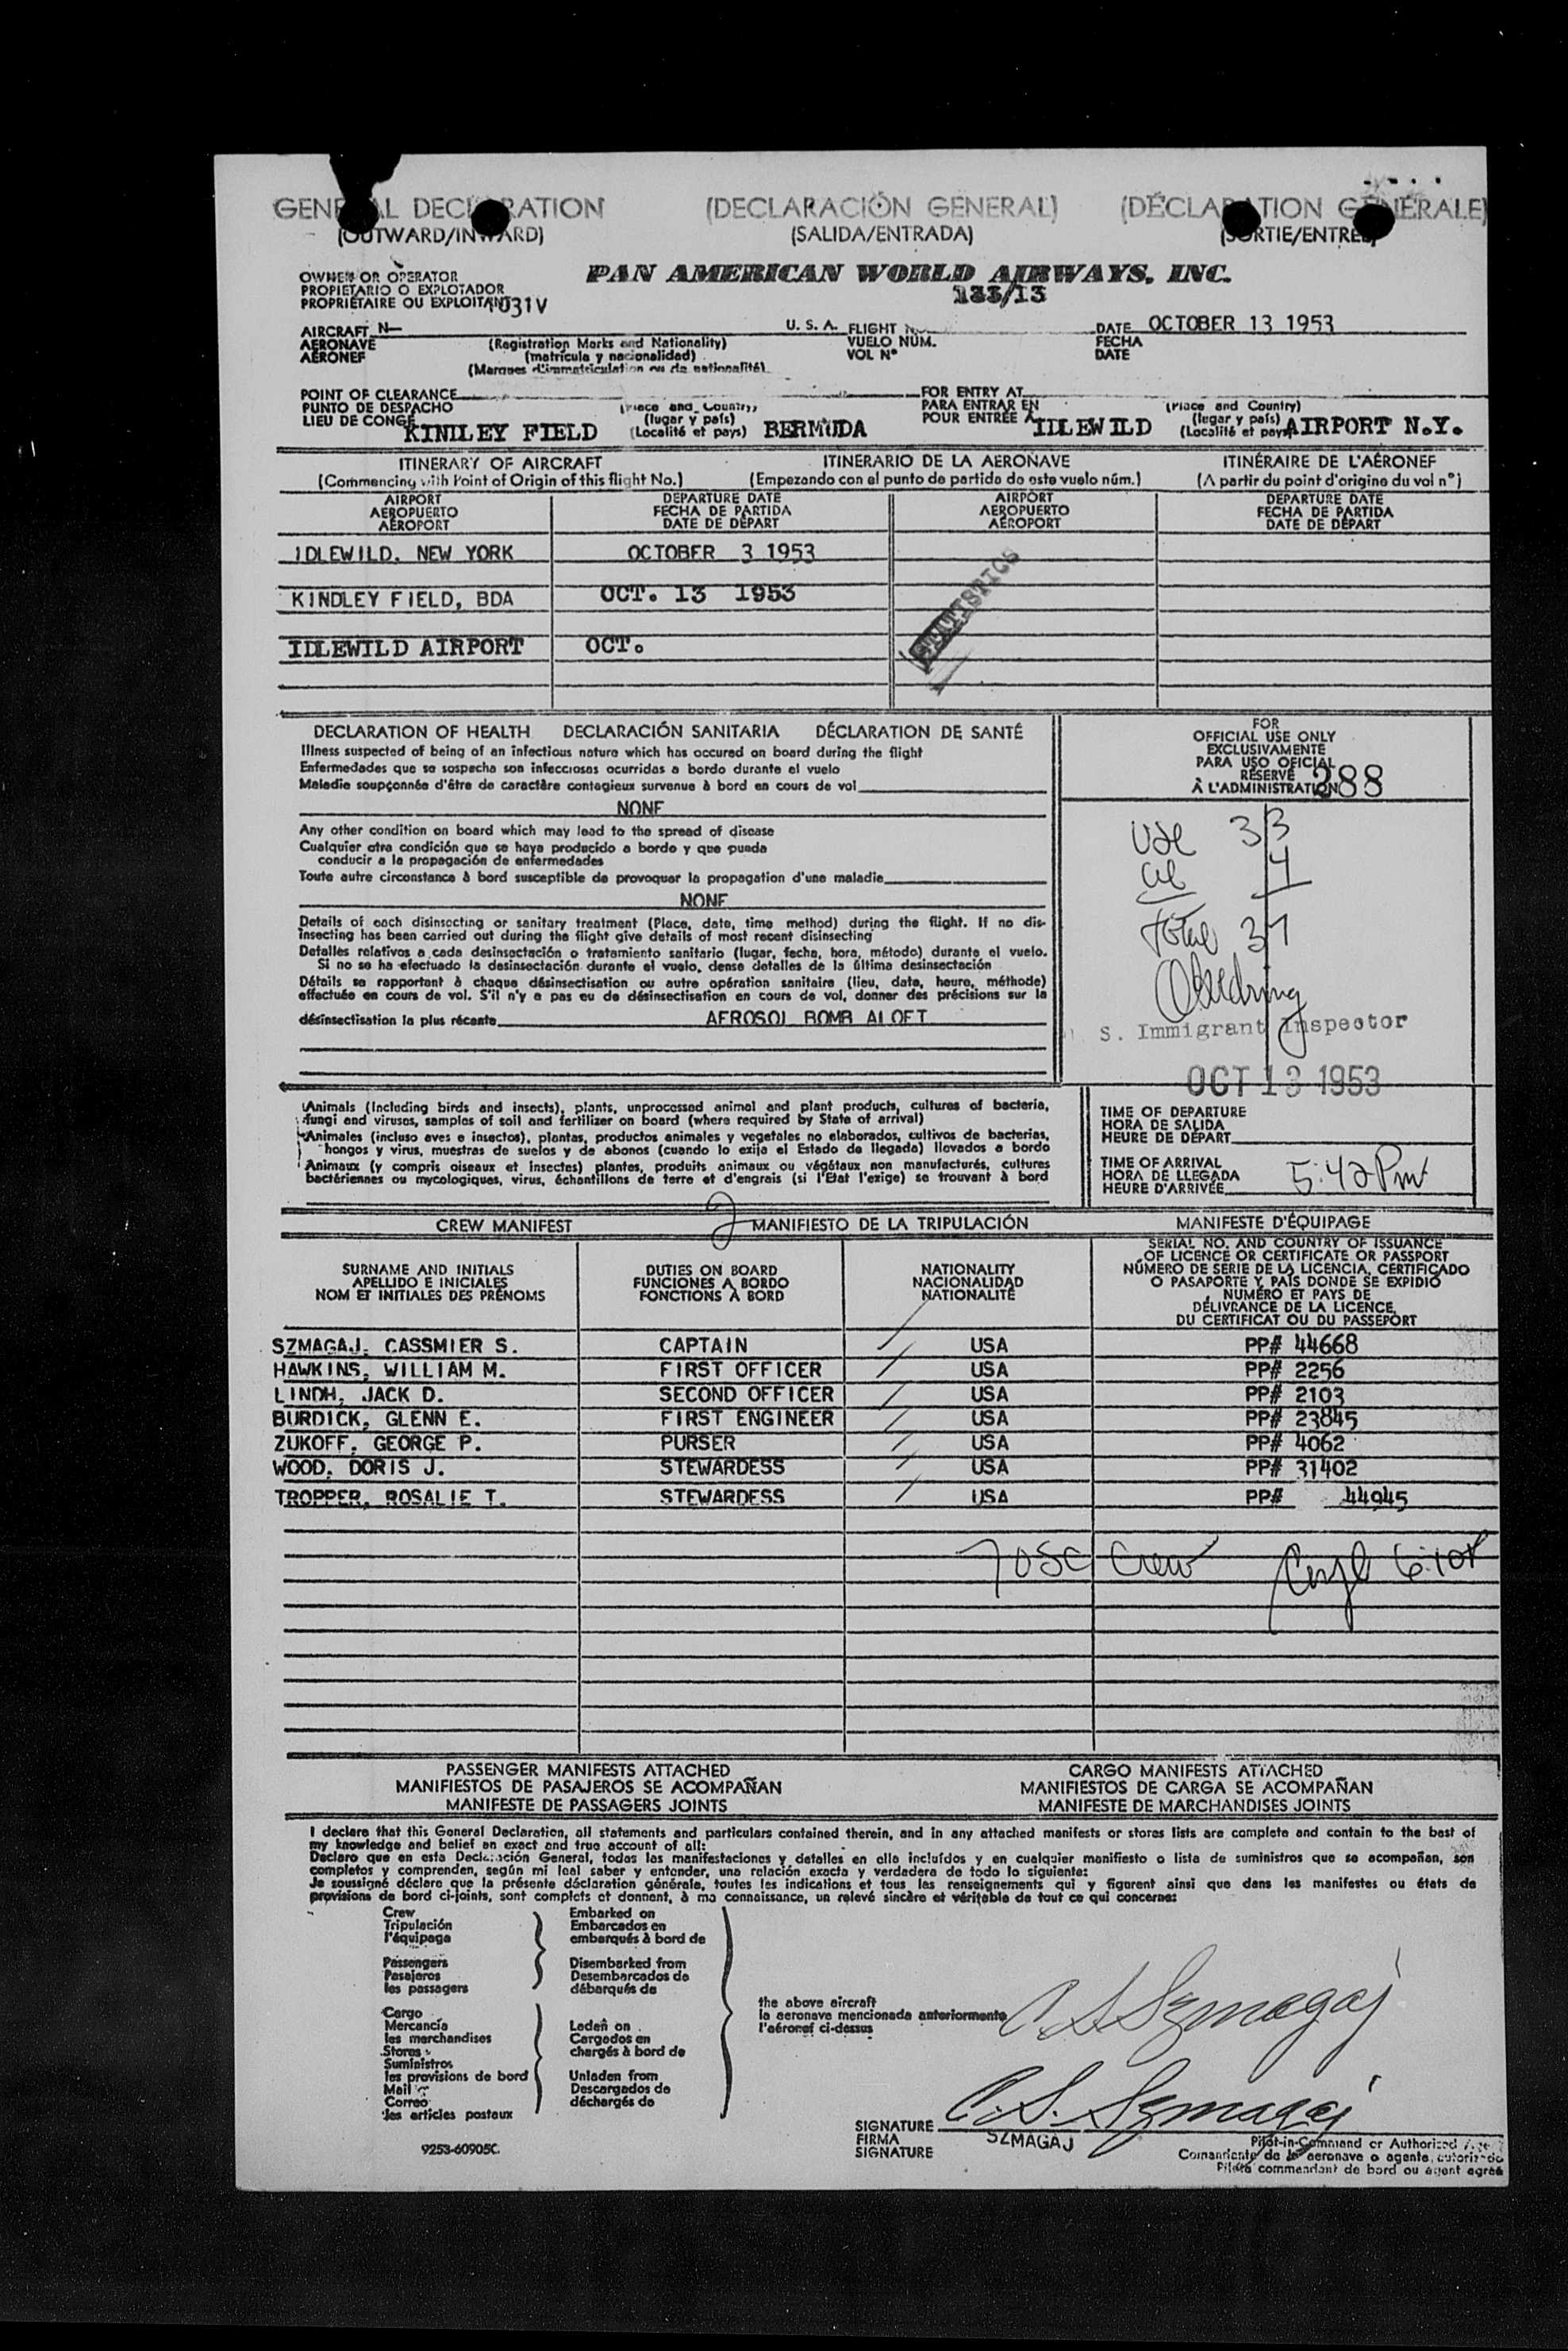 GENERAL DECLARATION (DECLARACIÓN GENERAL) (DÉCLARATION GÉNÉRALE)
(OUTWARD/INWARD) (SALIDA/ENTRADA) (SORTIE/ENTRÉE)
OWNER OR OPERATOR PAN AMERICAN WORLD AIRWAYS, INC.
PROPIETARIO O EXPLOTADOR 133/13
PROPRIÉTAIRE OU EXPLOITANT 1031V
AIRCRAFT N- U. S. A. FLIGHT DATE OCTOBER 13 1953
AERONAVE (Registration Marks and Nationality) VUELO NÚM. FECHA
AÉRONEF (matrícula y nacionalidad) VOL N° DATE
(Marques d'immatriculation ou de nationalité)
POINT OF CLEARANCE FOR ENTRY AT
PUNTO DE DESPACHO (Place and Country) PARA ENTRAR EN (Place and Country)
LIEU DE CONGÉ (lugar y país) POUR ENTRÉE À (lugar y país)
KINDLEY FIELD (Localité et pays) BERMUDA IDLEWILD (Localité et pays) AIRPORT N.Y.
ITINERARY OF AIRCRAFT ITINERARIO DE LA AERONAVE ITINÉRAIRE DE L'AÉRONEF
(Commencing with Point of Origin of this flight No.) (Empezando con el punto de partida de este vuelo núm.) (A partir du point d'origine du vol n°)
AIRPORT DEPARTURE DATE AIRPORT DEPARTURE DATE
AEROPUERTO FECHA DE PARTIDA AEROPUERTO FECHA DE PARTIDA
AÉROPORT DATE DE DÉPART AÉROPORT DATE DE DÉPART
IDLEWILD, NEW YORK OCTOBER 3 1953
KINDLEY FIELD, BDA OCT. 13 1953
STATISTICS
IDLEWILD AIRPORT OCT.
DECLARATION OF HEALTH DECLARACIÓN SANITARIA DÉCLARATION DE SANTÉ
Illness suspected of being of an infectious nature which has occured on board during the flight
Enfermedades que se sospecha son infecciosas ocurridas a bordo durante el vuelo
Maladie soupçonnée d'être de caractère contagieux survenue à bord en cours de vol
NONE
Any other condition on board which may lead to the spread of disease
Cualquier otra condición que se haya producido a bordo y que pueda
conducir a la propagación de enfermedades
Toute autre circonstance à bord susceptible de provoquer la propagation d'une maladie
NONE
Details of each disinsecting or sanitary treatment (Place, date, time method) during the flight. If no dis-
insecting has been carried out during the flight give details of most recent disinsecting
Detalles relativos a cada desinsectación o tratamiento sanitario (lugar, fecha, hora, método) durante el vuelo.
Si no se ha efectuado la desinsectación durante el vuelo, dense detalles de la última desinsectación
Détails se rapportant à chaque désinsectisation ou autre opération sanitaire (lieu, date, heure, méthode)
effectuée en cours de vol. S'il n'y a pas eu de désinsectisation en cours de vol, donner des précisions sur la
désinsectisation la plus récente AEROSOL BOMB ALOFT
FOR
OFFICIAL USE ONLY
EXCLUSIVAMENTE
PARA USO OFICIAL
RÉSERVÉ
À L'ADMINISTRATION 288
33
4
Total 37
S. Immigrant Inspector
OCT 13 1953
Animals (Including birds and insects), plants, unprocessed animal and plant products, cultures of bacteria,
fungi and viruses, samples of soil and fertilizer on board (where required by State of arrival)
Animales (incluso aves e insectos), plantas, productos animales y vegetales no elaborados, cultivos de bacterias,
hongos y virus, muestras de suelos y de abonos (cuando lo exija el Estado de llegada) llevados a bordo
Animaux (y compris oiseaux et insectes) plantes, produits animaux ou végétaux non manufacturés, cultures
bactériennes ou mycologiques, virus, échantillons de terre et d'engrais (si l'Etat l'exige) se trouvant à bord
TIME OF DEPARTURE
HORA DE SALIDA
HEURE DE DÉPART
TIME OF ARRIVAL
HORA DE LLEGADA 5:42 Pm
HEURE D'ARRIVÉE
2
CREW MANIFEST MANIFIESTO DE LA TRIPULACIÓN MANIFESTE D'ÉQUIPAGE
SURNAME AND INITIALS
APELLIDO E INICIALES
NOM ET INITIALES DES PRÉNOMS
DUTIES ON BOARD
FUNCIONES A BORDO
FONCTIONS À BORD
NATIONALITY
NACIONALIDAD
NATIONALITÉ
SERIAL NO. AND COUNTRY OF ISSUANCE
OF LICENCE OR CERTIFICATE OR PASSPORT
NÚMERO DE SERIE DE LA LICENCIA, CERTIFICADO
O PASAPORTE Y PAÍS DONDE SE EXPIDIÓ
NUMÉRO ET PAYS DE
DÉLIVRANCE DE LA LICENCE,
DU CERTIFICAT OU DU PASSEPORT
SZMAGAJ, CASSMIER S. CAPTAIN USA PP# 44668
HAWKINS, WILLIAM M. FIRST OFFICER USA PP# 2256
LINDH, JACK D. SECOND OFFICER USA PP# 2103
BURDICK, GLENN E. FIRST ENGINEER USA PP# 23845
ZUKOFF, GEORGE P. PURSER USA PP# 4062
WOOD, DORIS J. STEWARDESS USA PP# 31402
TROPPER, ROSALIE T. STEWARDESS USA PP# 44945
7 OSC Crew 6:10P
PASSENGER MANIFESTS ATTACHED CARGO MANIFESTS ATTACHED
MANIFIESTOS DE PASAJEROS SE ACOMPAÑAN MANIFIESTOS DE CARGA SE ACOMPAÑAN
MANIFESTE DE PASSAGERS JOINTS MANIFESTE DE MARCHANDISES JOINTS
I declare that this General Declaration, all statements and particulars contained therein, and in any attached manifests or stores lists are complete and contain to the best of
my knowledge and belief an exact and true account of all:
Declaro que en esta Declaración General, todas las manifestaciones y detalles en ella incluídos y en cualquier manifiesto o lista de suministros que se acompañan, son
completos y comprenden, según mi leal saber y entender, una relación exacta y verdadera de todo lo siguiente:
Je soussigné déclare que la présente déclaration générale, toutes les indications et tous les renseignements qui y figurent ainsi que dans les manifestes ou états de
provisions de bord ci-joints, sont complets et donnent, à ma connaissance, un relevé sincère et véritable de tout ce qui concerne:
Crew Embarked on
Tripulación Embarcados en
l'équipage embarqués à bord de
Passengers Disembarked from
Pasajeros Desembarcados de
les passagers débarqués de
the above aircraft
la aeronave mencionada anteriormente C S Szmagaj
l'aéronef ci-dessus
Cargo
Mercancía Laden on
les merchandises Cargados en
Stores chargés à bord de
Suministros
les provisions de bord Unladen from
Mail Descargados de
Correo déchargés de
les articles postaux
SIGNATURE C. S. Szmagaj
FIRMA SZMAGAJ
SIGNATURE
Pilot-in-Command or Authorized Agent
Comandante de la aeronave o agente autorizado
Pilote commandant de bord ou agent agréé
9253-60905C